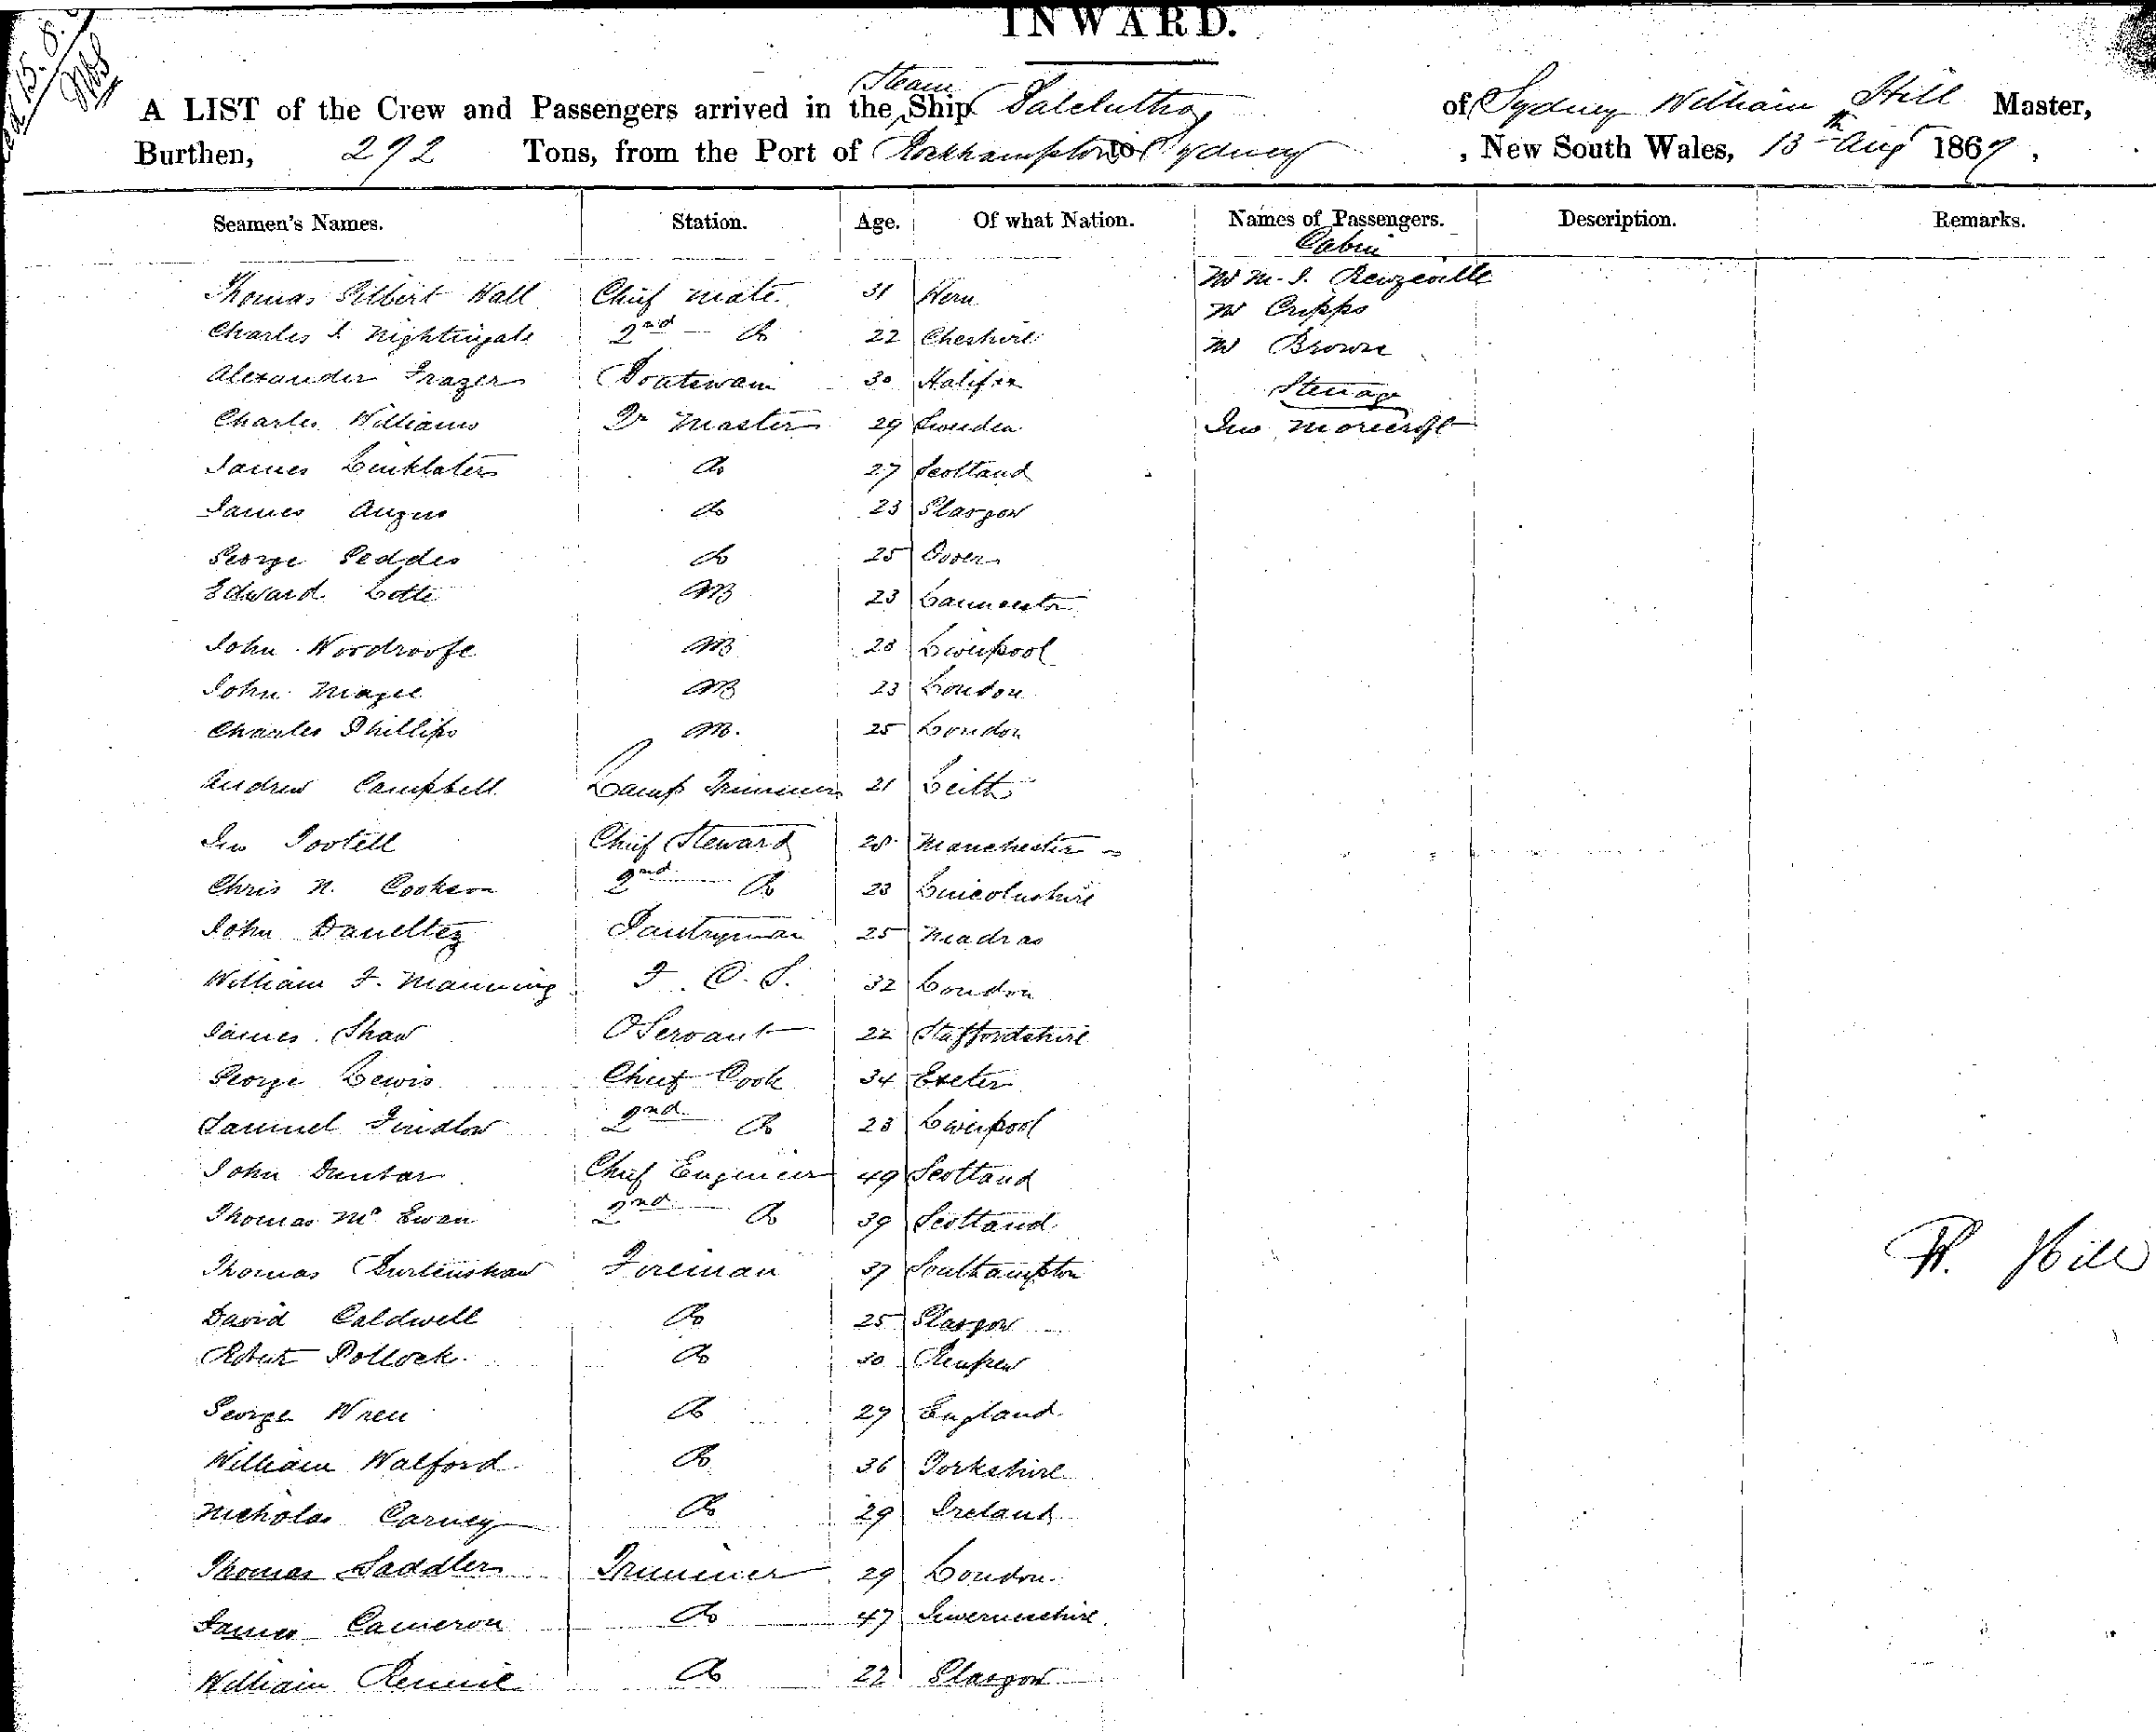 INWARD.
A LIST of the Crew and Passengers arrived in the Steam Ship Balclutha of Sydney William Hill Master,
Burthen, 292 Tons, from the Port of Rockhampton to Sydney, New South Wales, 13th Aug 1867,
Seamen's Names. Station. Age. Of what Nation. Names of Passengers. Description. Remarks.
Cabin
Thomas Gilbert Hall Chief Mate 31 Mr M. J.
Mr Cripps
Charles J. Nightingale 2nd do 22 Cheshire
Mr Brown
Alexander Frazer Boatswain 30 Halifax
Steerage
Charles Williams Qr Master 29 Sweden Jno
James Linklater do 27 Scotland
James Angus do 23 Glasgow
George Geddes do 25 Dover
Edward Lotte AB 23 Launceston
John Woodroofe AB 28 Liverpool
John Magee AB 23 London
Charles Phillips AB. 25 London
Andrew Campbell Lamp Trimmer 21 Leith
Jno Tootell Chief Steward 28 Manchester
Chris N. Cookson 2nd do 23 Lincolnshire
John Daneltez Pantryman 25 Madras
William F. Manning F. C. S. 32 London
James Shaw O Servant 22 Staffordshire
George Lewis Chief Cook 34 Exeter
Samuel Findlow 2nd do 23 Liverpool
John Dunbar Chief Engineer 49 Scotland
Thomas Mc Ewan 2nd do 39 Scotland
Thomas Burtenshaw Fireman 37 Southampton
W. Hill
David Caldwell do 25 Glasgow
Robert Pollock do 30 Renfrew
George Wren do 29 England
William Walford do 36 Yorkshire
Nicholas Carney do 29 Ireland
Thomas Saddler Trimmer 29 London
James Cameron do 47 Invernesshire
William Rennie do 22 Glasgow